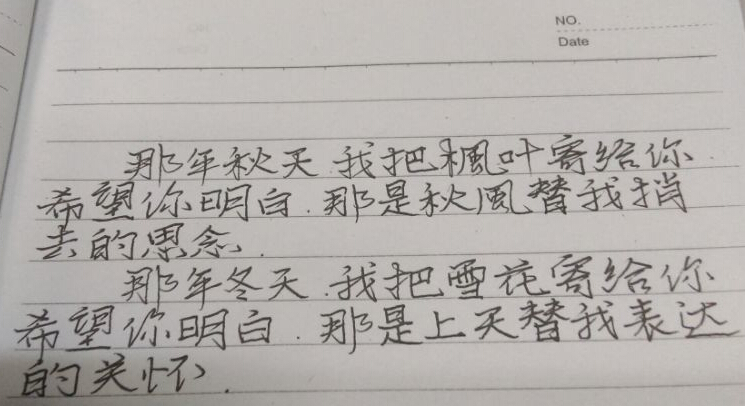 NO.
Date
那年秋天.我把楓叶寄给你.
希望你明白.那是秋風替我捎
去的思念.
那年冬天.我把雪花寄给你
希望你明白.那是上天替我表达
的关怀.